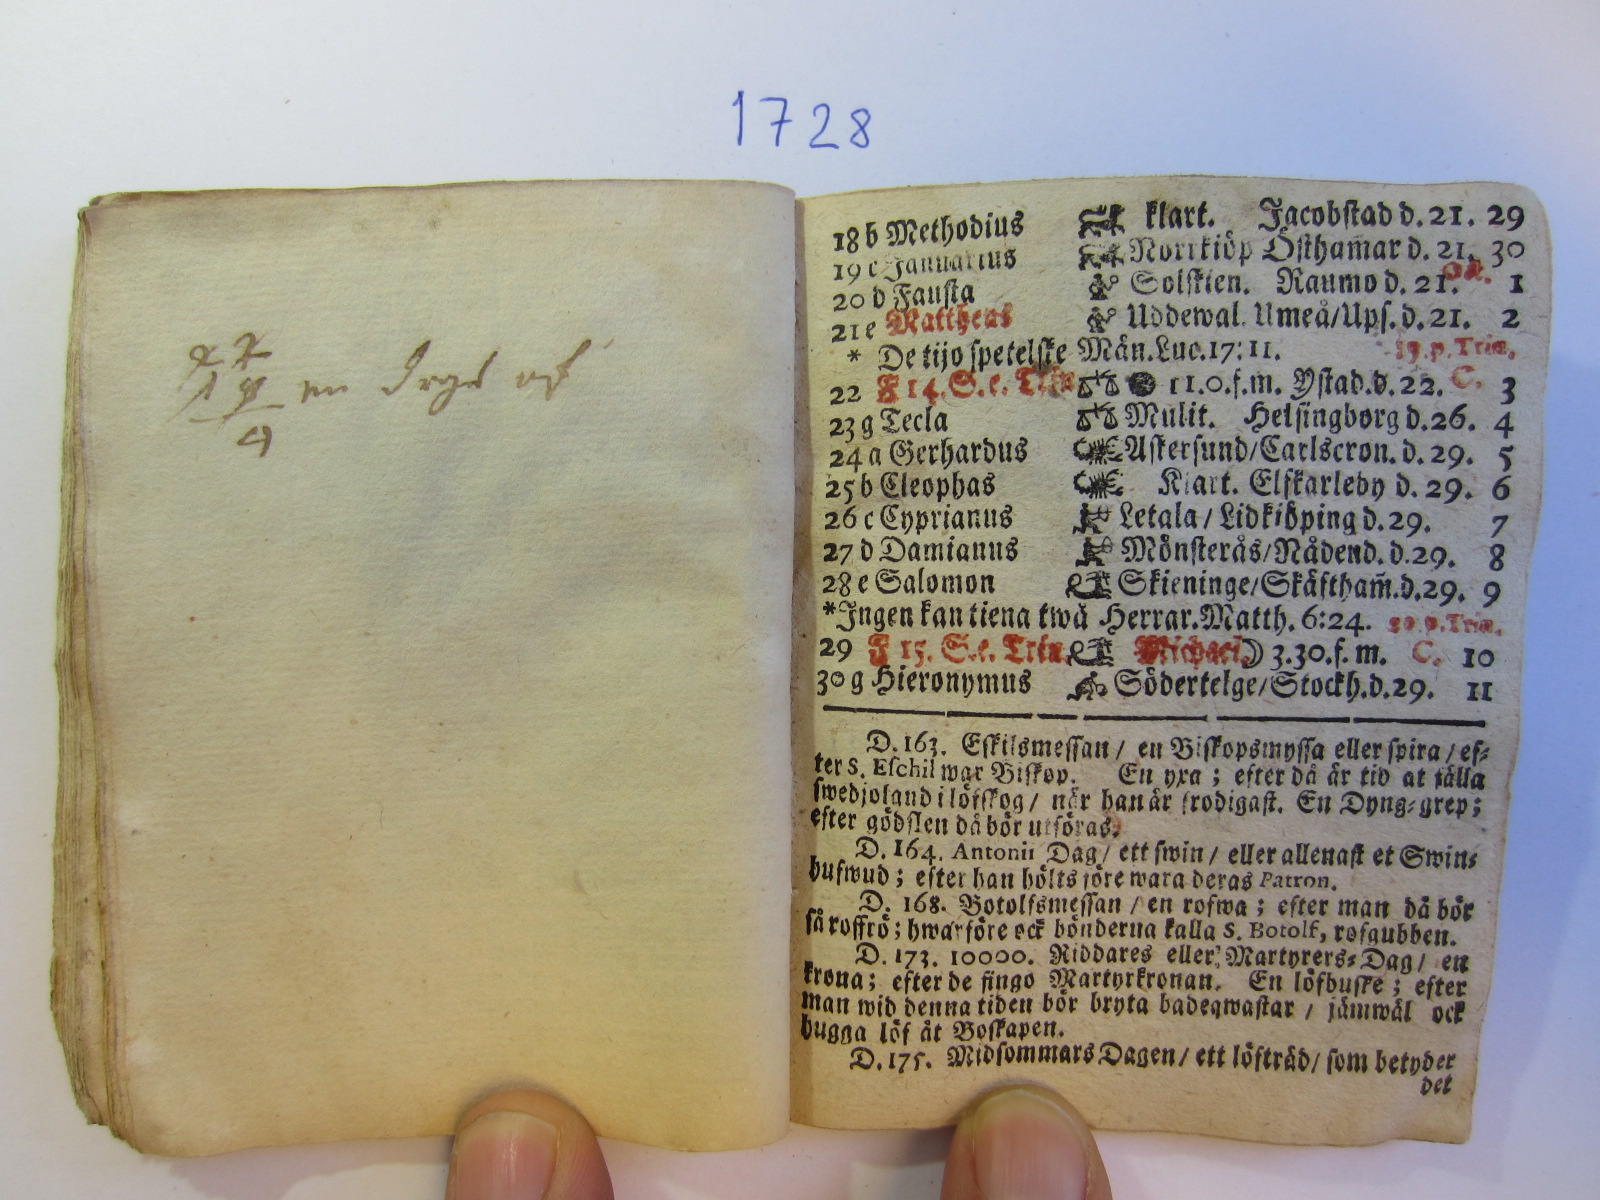 1728
en
18 b Methodius klart. Jacobstad d. 21. 29
19 c Januarius Norrkiöp Östhamar d. 21. 30
20 d Fausta Solskien. Raumo d. 21. 1
21 e Mattheus Uddewal. Umeå/Ups. d. 21. 2
* De tijo spetelske Män. Luc. 17: 11. 19. p. Trin.
22 F 14. S. e. Trin. 11. 0. f. m. Ystad. d. 22. C. 3
23 g Tecla Mulit. Helsingborg d. 26. 4
24 a Gerhardus Askersund/Carlscron. d. 29. 5
25 b Cleophas Klart. Elfkarleby d. 29. 6
26 c Cyprianus Letala / Lidkiöping d. 29. 7
27 d Damianus Mönsterås/Nådend. d. 29. 8
28 e Salomon Skieninge/Skäftham̃. d. 29. 9
* Ingen kan tiena twå Herrar. Matth. 6: 24. 20. p. Trin.
29 F 15. S. e. Trin. Michael ☽ 3. 30. f. m. C. 10
30 g Hieronymus Södertelge/Stockh. d. 29. 11
D. 163. Eskilsmessan / en Biskopsmyssa eller spira / ef-
ter S. Eschil war Biskop. En yxa ; efter då är tid at fälla
swedjoland i löfskog / när han är frodigast. En Dyng-grep ;
efter gödslen då bör utföras.
D. 164. Antonii Dag / ett swin / eller allenast et Swin-
hufwud ; efter han hölts före wara deras Patron.
D. 168. Botolfsmessan / en rofwa ; efter man då bör
så roffrö ; hwarföre ock bönderna kalla S. Botolf, rofgubben.
D. 173. 10000. Riddares eller Martyrers-Dag / en
krona ; efter de fingo Martyrkronan. En löfbuske ; efter
man wid denna tiden bör bryta badeqwastar / jämwäl ock
hugga löf åt Boskapen.
D. 175. Midsommars Dagen / ett löfträd / som betyder
det